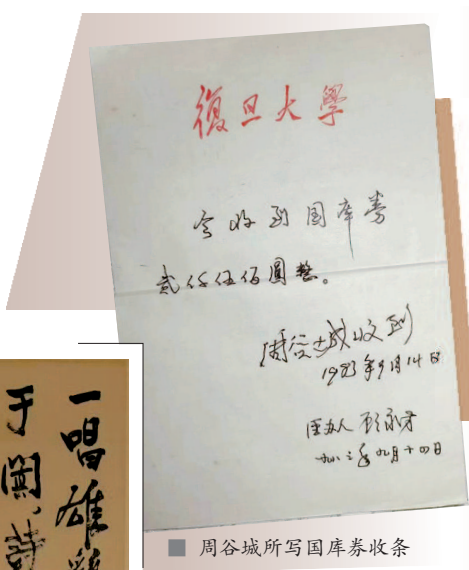 復旦大學
今收到国库券
贰仟伍佰圆整。
周谷城收到
1983年9月14日
经办人
一九八三年九月十四日
一唱雄鸡
于阗、诗
周谷城所写国库券收条